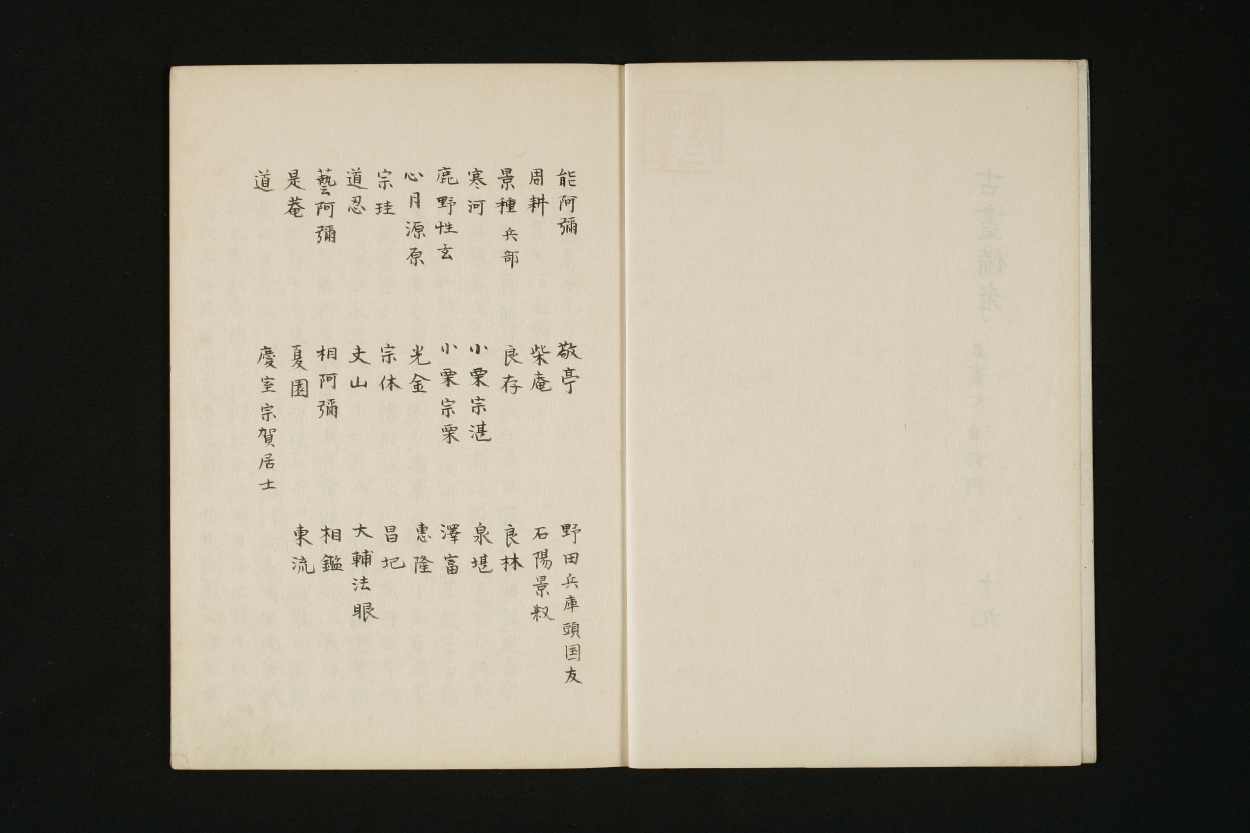 能阿彌 敬亭 野田兵庫頭国友
周耕 柴庵 石陽景叔
景種兵部 良存 良林
寒河 小栗宗湛 泉堪
鹿野性玄 小栗宗栗 澤富
心月源原 光金 惠隆
宗珪 宗休 昌圯
道忍 丈山 大輔法眼
藝阿彌 相阿彌 相鑑
是菴 夏園 東流
道 慶室宗賀居士
古畫備考
十九